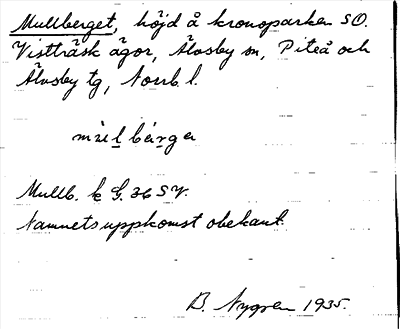 Mullberget, höjd å kronoparken SO.
Vistträsk ägor, Älvsby sn, Piteå och
Älvsby tg, Norrb. l.
mùl bárga
Mullb. k G. 36 SV.
Namnets uppkomst obekant.
B. Nygren 1935.